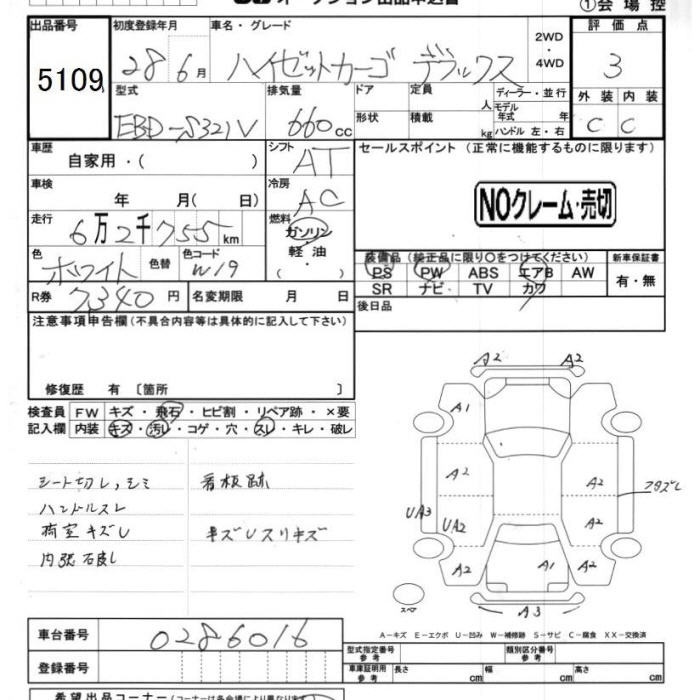 オークション出品申込書
①会場控
出品番号 初度登録年月 車名・グレード 評価点
5109 28 6月 ハイゼットカーゴ デラックス 2WD・4WD 3
型式 排気量 ドア 定員 人 ディーラー・並行 外装 内装
EBD-S321V 660cc 形状 積載 kg モデル年式 年式 ハンドル左・右 C C
車歴 自家用・( ) シフト AT セールスポイント (正常に機能するものに限ります)
車検 年 月( 日) 冷房 AC NOクレーム・売切
走行 6万2千755km 燃料 ガソリン・軽油・( )
色 ホワイト 色替 色コード W19
装備品 (純正品に限り○をつけてください) 新車保証書
PS PW ABS エアB AW 有・無
SR ナビ TV カワ
R券 7340円 名変期限 月 日 後日品
注意事項申告欄 (不具合内容等は具体的に記入して下さい)
修復歴 有 〔箇所 〕
検査員 FW キズ・飛石・ヒビ割・リペア跡・×要
記入欄 内装 キズ・汚レ・コゲ・穴・スレ・キレ・破レ
シート切レ,シミ 看板跡
ハンドルスレ
荷室キズU キズUスリキズ
A2 A2
A1
A2 A2
UA3 UA2 A2
A2 A1 A2
スペア A3
A-キズ E-エクボ U-凹み W-補修跡 S-サビ C-腐食 XX-交換済
車台番号 0286016
型式指定番号 参考 類別区分番号 参考
登録番号
車庫証明用 参考 長さ cm 幅 cm 高さ cm
希望出品コーナー